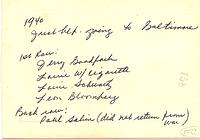 1940
just bef. going to Baltimore
1st Row:
Jerry
Louie W/ cigarette
Louie Schwartz
Leon Bloomberg
Back row:
Paul Sabin (did not return from war